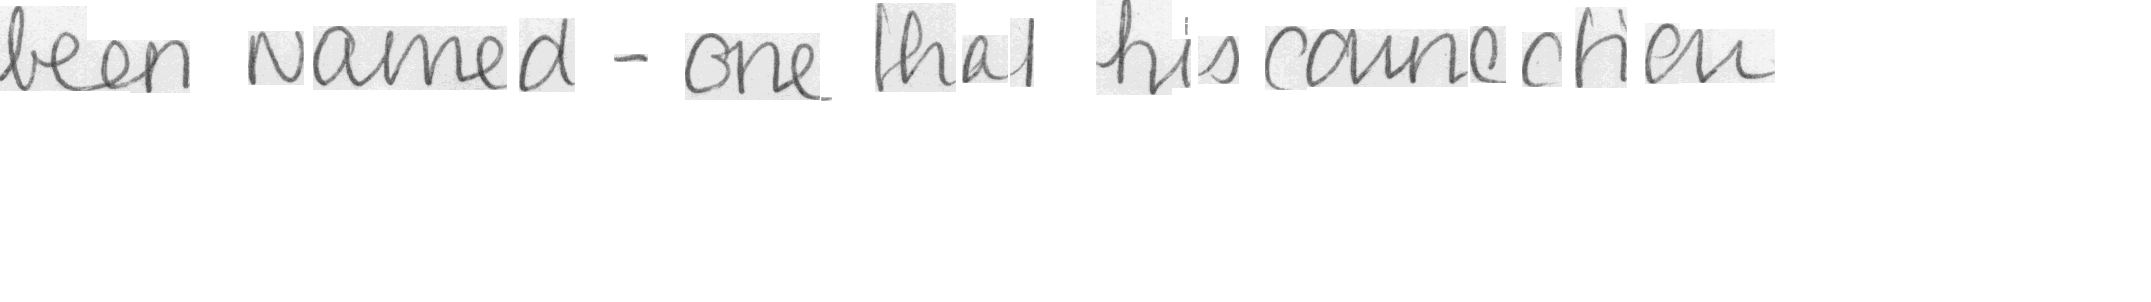 been named - one that his connection